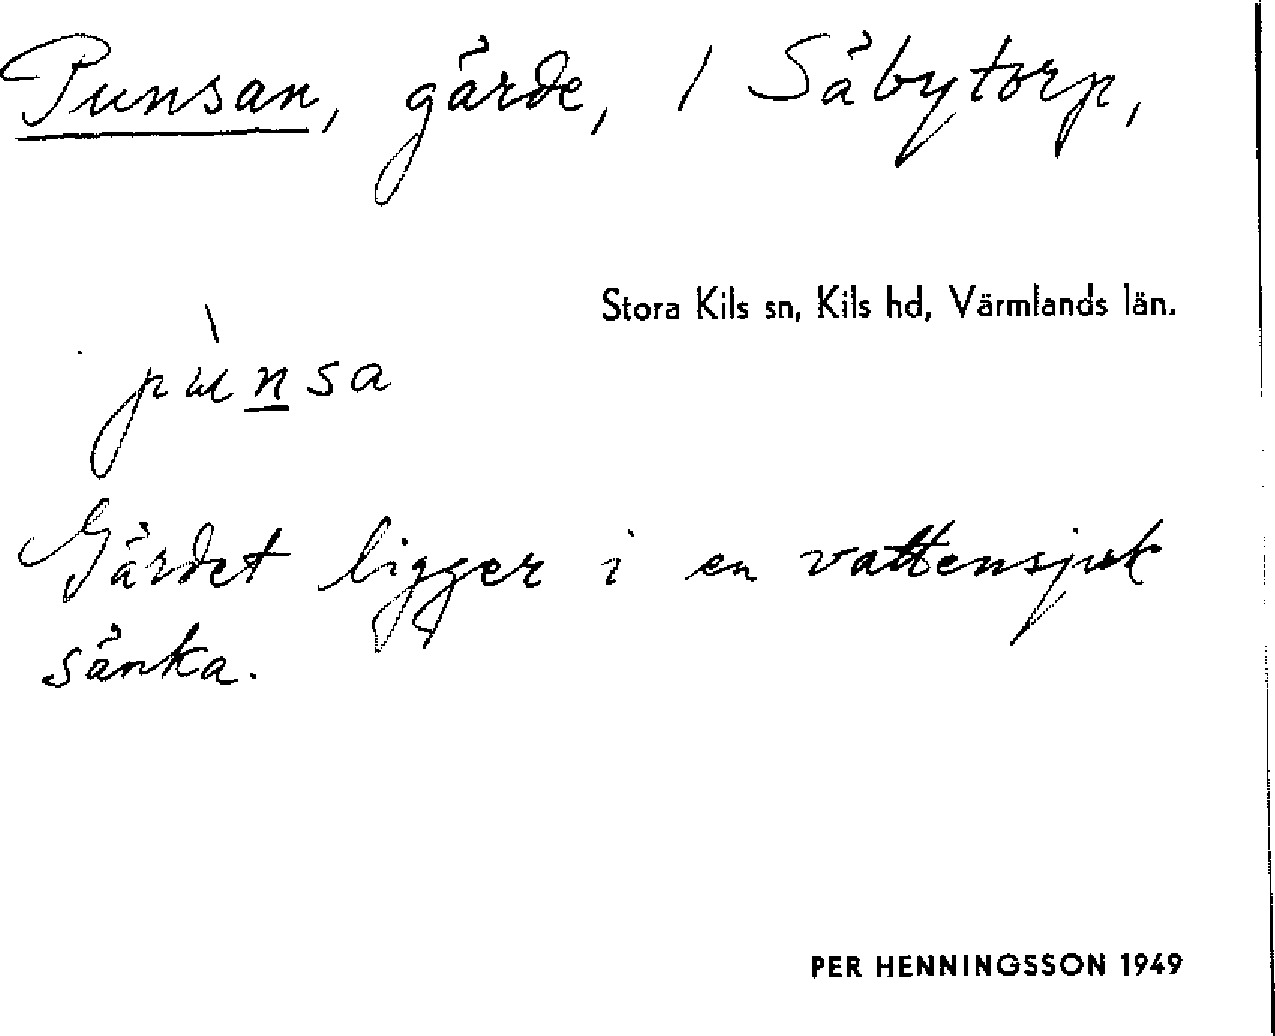 Punsan, gärde, / Säbytorp,
Stora Kils sn, Kils hd, Värmlands län.
pùnsa
Gärdet ligger i en vattensjuk
sänka.
PER HENNINGSSON 1949